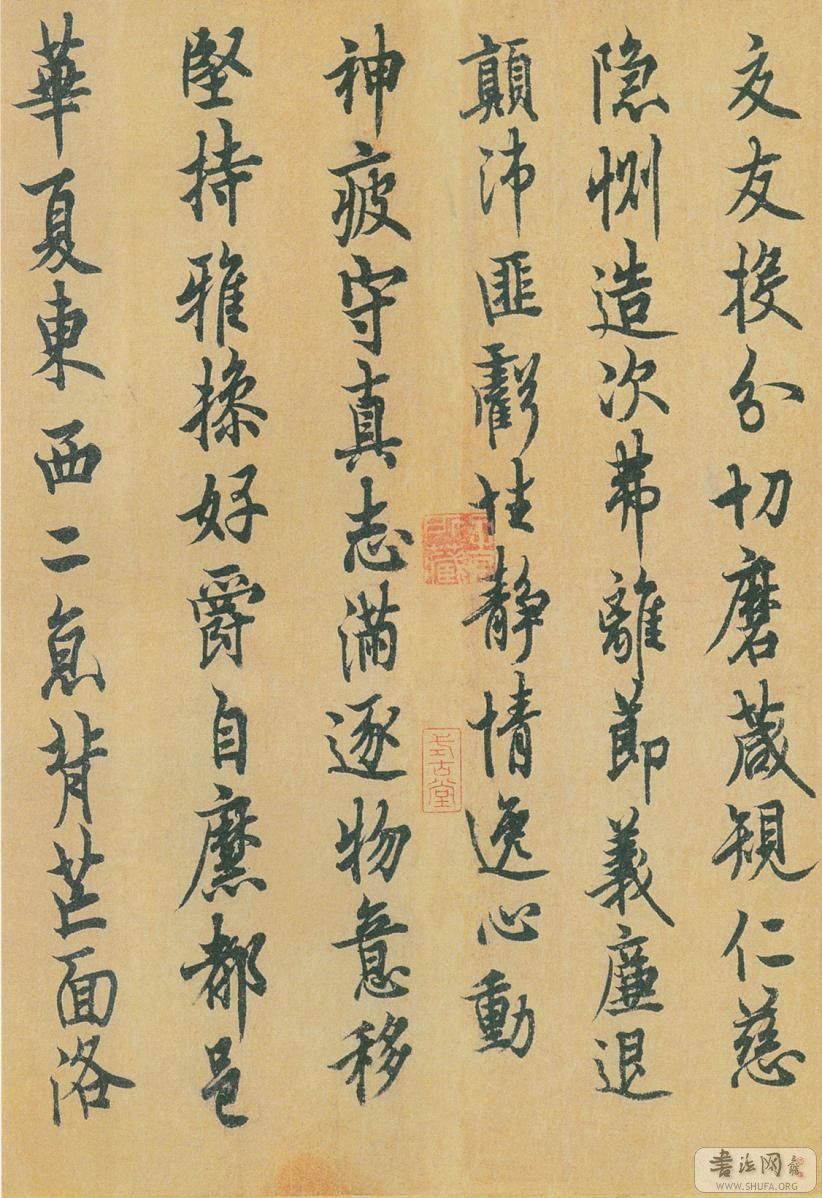 交友投分切磨箴規仁慈
隱惻造次弗離節義廉退
顛沛匪虧性靜情逸心動
神疲守真志滿逐物意移
堅持雅操好爵自縻都邑
華夏東西二京背芒面洛
式古堂
書法网
WWW.SHUFA.ORG